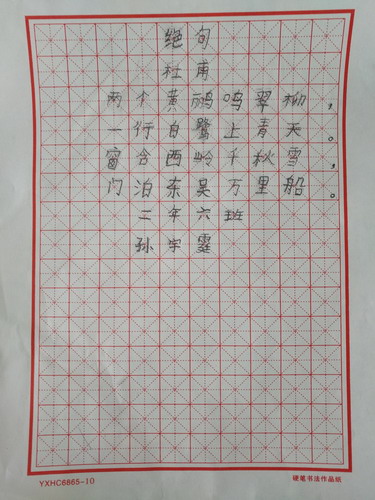 绝句
杜甫
两个黄鹂鸣翠柳，
一行白鹭上青天。
窗含西岭千秋雪，
门泊东吴万里船。
三年六班
孙宇霆
YXHC6865-10
硬笔书法作品纸